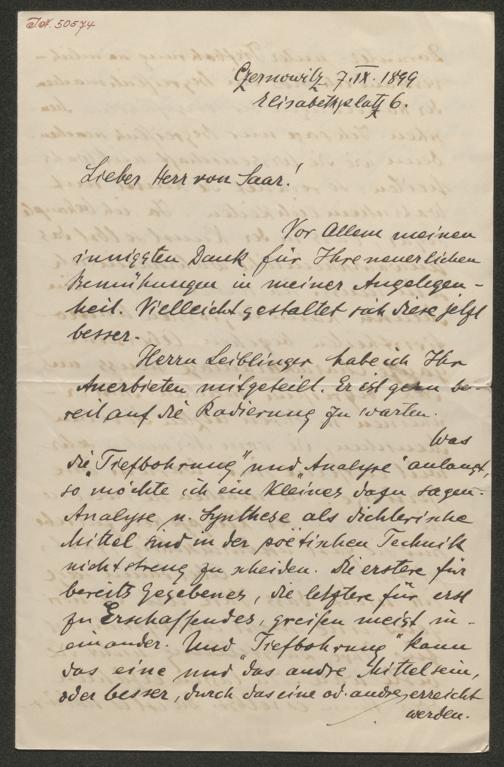 I.N. 50574
Czernowitz 7.IX.1899
Elisabethplatz 6.
Lieber Herr von Saar!
Vor Allem meinen
innigsten Dank für Ihre neuerlichen
Bemühungen in meiner Angelegen-
heit. Vielleicht gestaltet sich diese jetzt
besser.
Herrn Leiblinger habe ich Ihr
Anerbieten mitgeteilt. Er ist gern be-
reit auf die Radierung zu warten.
Was
die "Tiefbohrung" und "Analyse" anlangt,
so möchte ich ein Kleines dazu sagen.
Analyse u. Synthese als dichterische
Mittel sind in der poëtischen Technik
nicht streng zu scheiden. Die erstere für
bereits Gegebenes, die letztere für erst
zu Erschaffendes, greifen meist in-
einander. Und "Tiefbohrung" kann
das eine und das andre Mittel sein,
oder besser, durch das eine od. andre erreicht
werden.